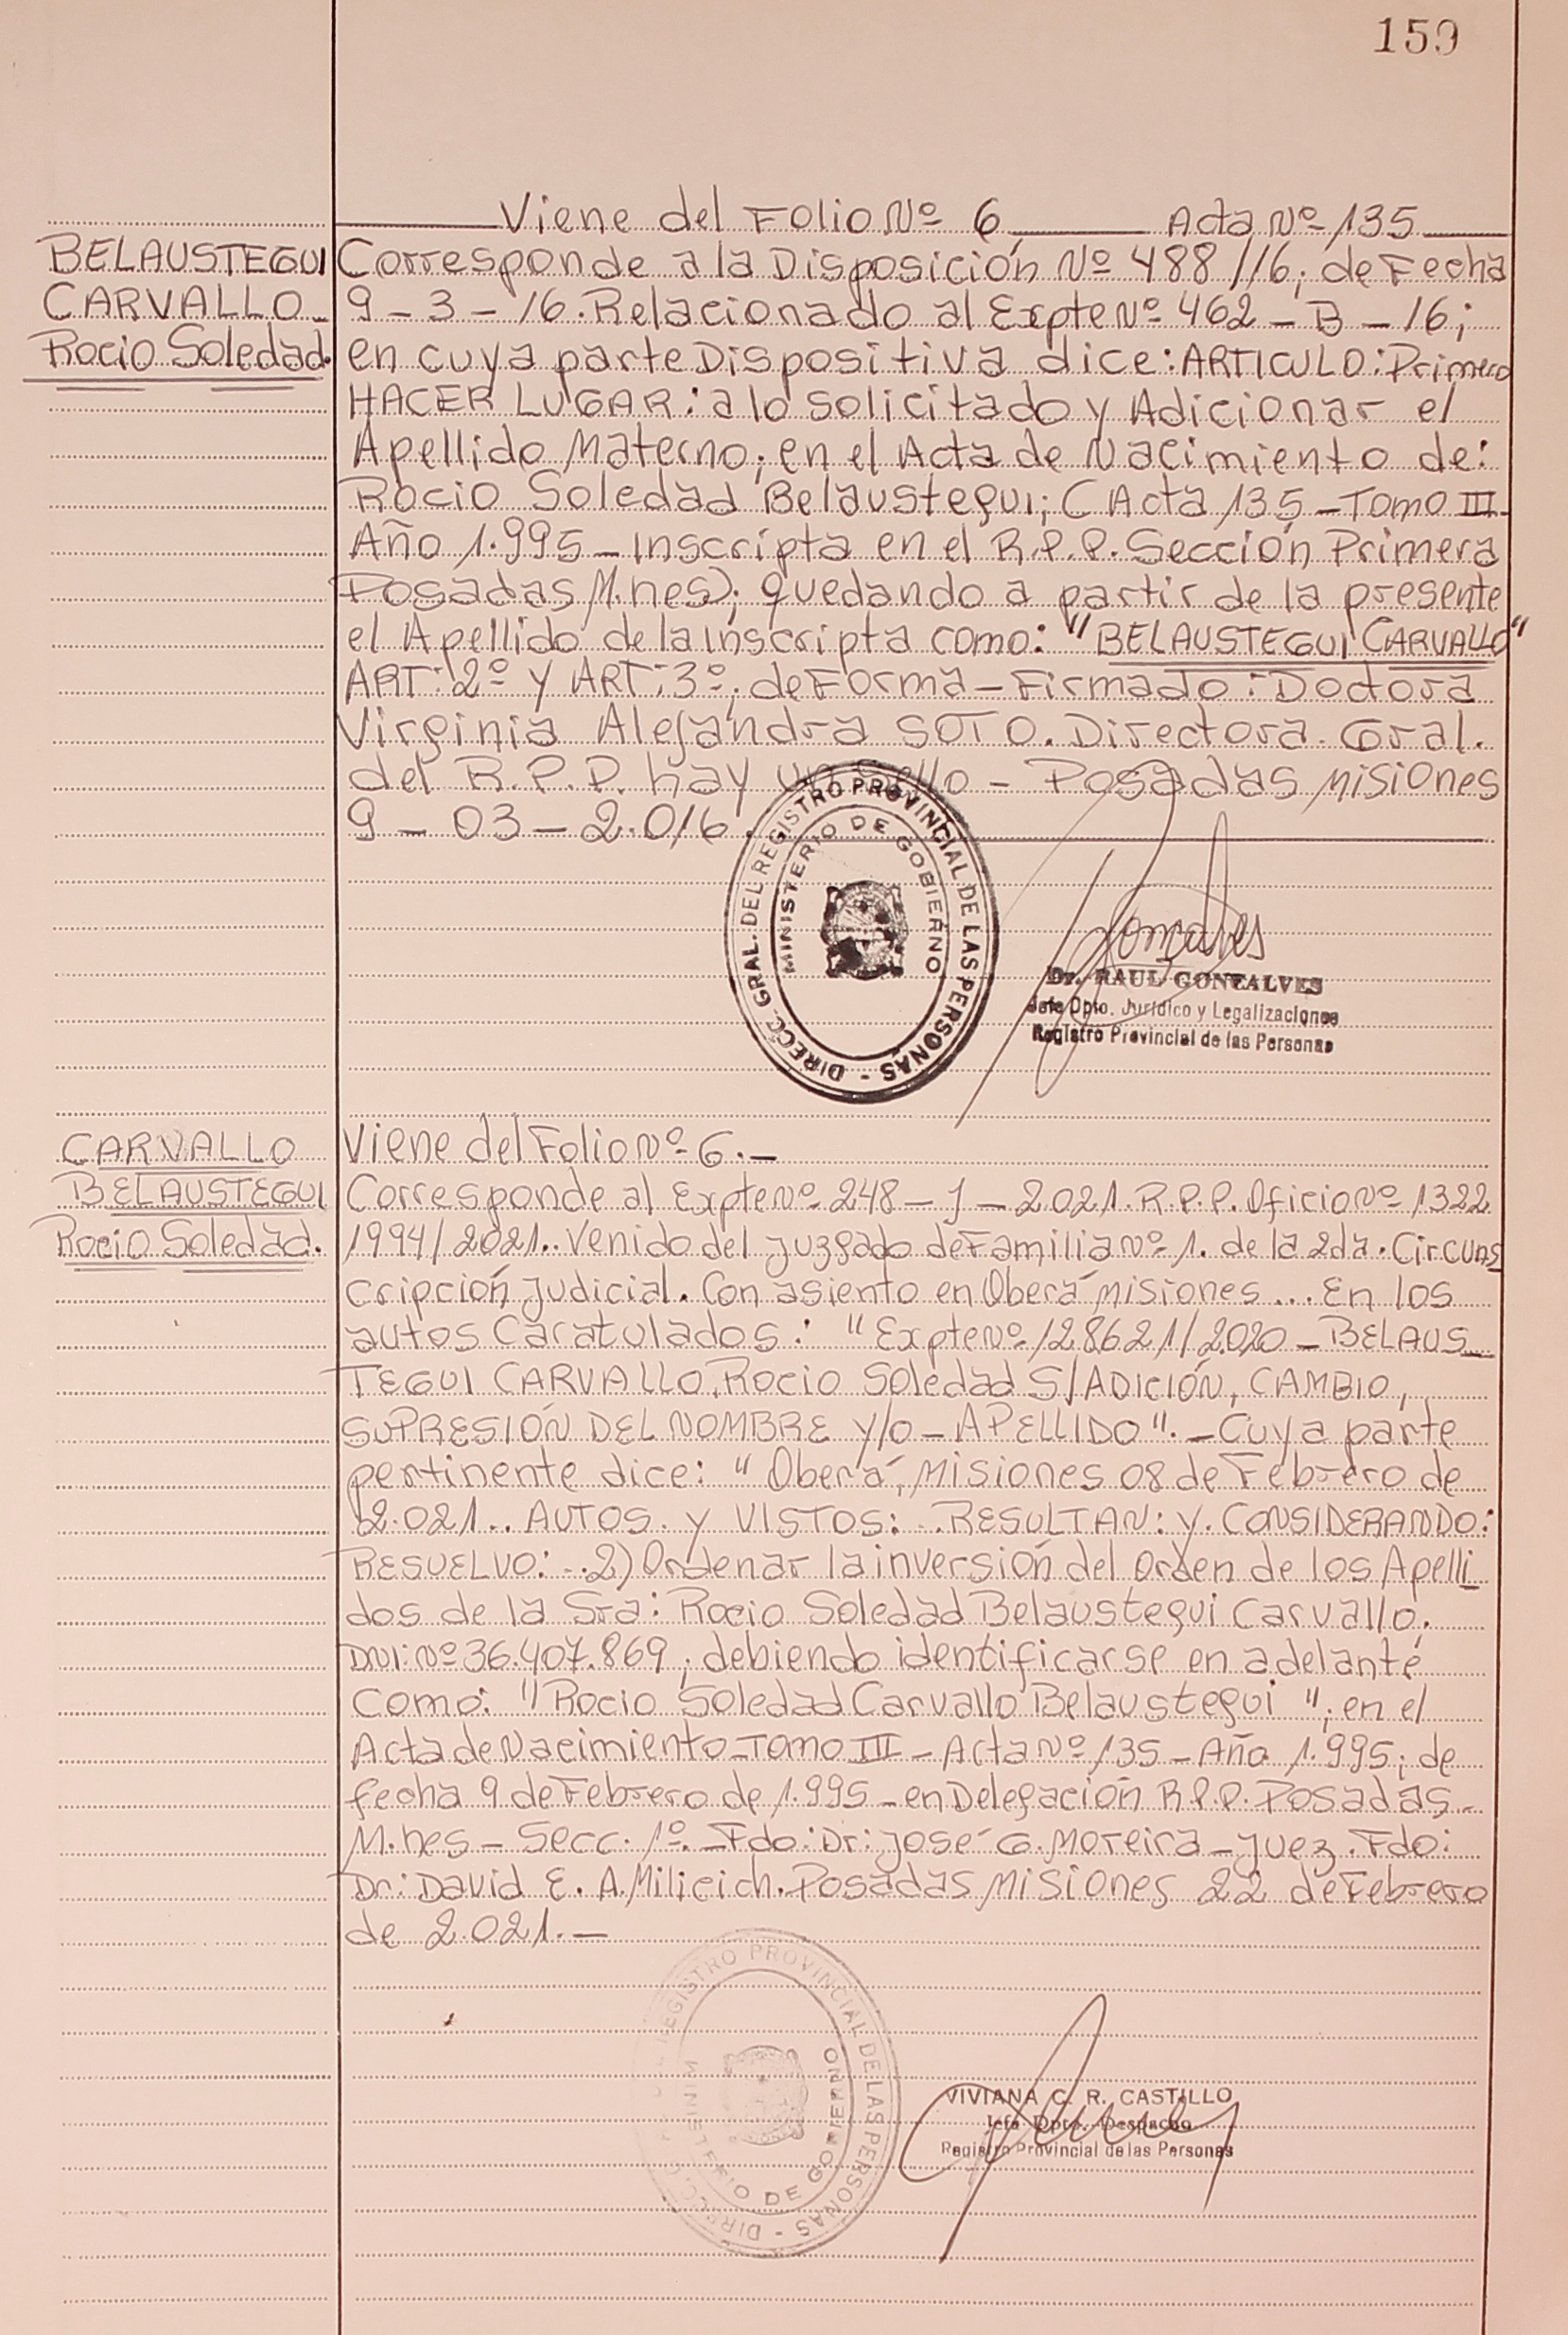 159
Viene del Folio Nº 6 Acta Nº 135
BELAUSTEGUI
CARVALLO_
Rocio Soledad.
Corresponde a la Disposición Nº 488/16; de Fecha
9 - 3 - 16. Relacionado al Expte Nº 462 - B - 16;
en cuya parte Dispositiva dice: ARTICULO: Primero
HACER LUGAR: a lo solicitado y Adicionar el
Apellido Materno; en el Acta de Nacimiento de:
Rocio Soledad Belaustegui; (Acta 135 - Tomo III -
Año 1.995 - Inscripta en el R.P.P. Sección Primera
Posadas M.nes); quedando a partir de la presente
el Apellido de la inscripta como: "BELAUSTEGUI CARVALLO"
ART: 2º Y ART: 3º; de Forma - Firmado: Doctora
Virginia Alejandra SOTO. Directora Gral.
del R.P.P. hay un Sello - Posadas Misiones
9 - 03 - 2.016.
DIRECC. GRAL. DEL REGISTRO PROVINCIAL DE LAS PERSONAS -
MINISTERIO DE GOBIERNO
Gonçalves
Dr. RAUL GONCALVES
Jefe Dpto. Jurídico y Legalizaciones
Registro Provincial de las Personas
CARVALLO
BELAUSTEGUI
Rocio Soledad.
Viene del Folio Nº 6._
Corresponde al Expte Nº 248 - J - 2.021. R.P.P. Oficio Nº 1322
1994/2021.. Venido del Juzgado de Familia Nº 1. de la 2da. Circuns
cripción Judicial. Con asiento en Oberá Misiones ... En los
autos Caratulados: "Expte Nº 128621/2020 - BELAUS_
TEGUI CARVALLO, Rocio Soledad S/ADICIÓN, CAMBIO,
SUPRESIÓN DEL NOMBRE y/o - APELLIDO". - Cuya parte
pertinente dice: "Oberá, Misiones 08 de Febrero de
2.021.. AUTOS y VISTOS: .. RESULTAN: y CONSIDERANDO:
RESUELVO: ..2) Ordenar la inversión del Orden de los Apelli
dos de la Sra: Rocio Soledad Belaustegui Carvallo.
DNI: Nº 36.407.869; debiendo identificarse en adelante
como: "Rocio Soledad Carvallo Belaustegui"; en el
Acta de Nacimiento - Tomo III - Acta Nº 135 - Año 1.995; de
fecha 9 de Febrero de 1.995 - en Delegación R.P.P. Posadas -
M.nes - Secc. 1º. - Fdo: Dr: José G. Moreira - Juez. Fdo:
Dr: David E. A. Milicich. Posadas Misiones 22 de Febrero
de 2.021.-
REGISTRO PROVINCIAL DE LAS PERSONAS - DIRECC
MINISTERIO DE GOBIERNO
VIVIANA C. R. CASTILLO
Jefa Dpto. Despacho
Registro Provincial de las Personas